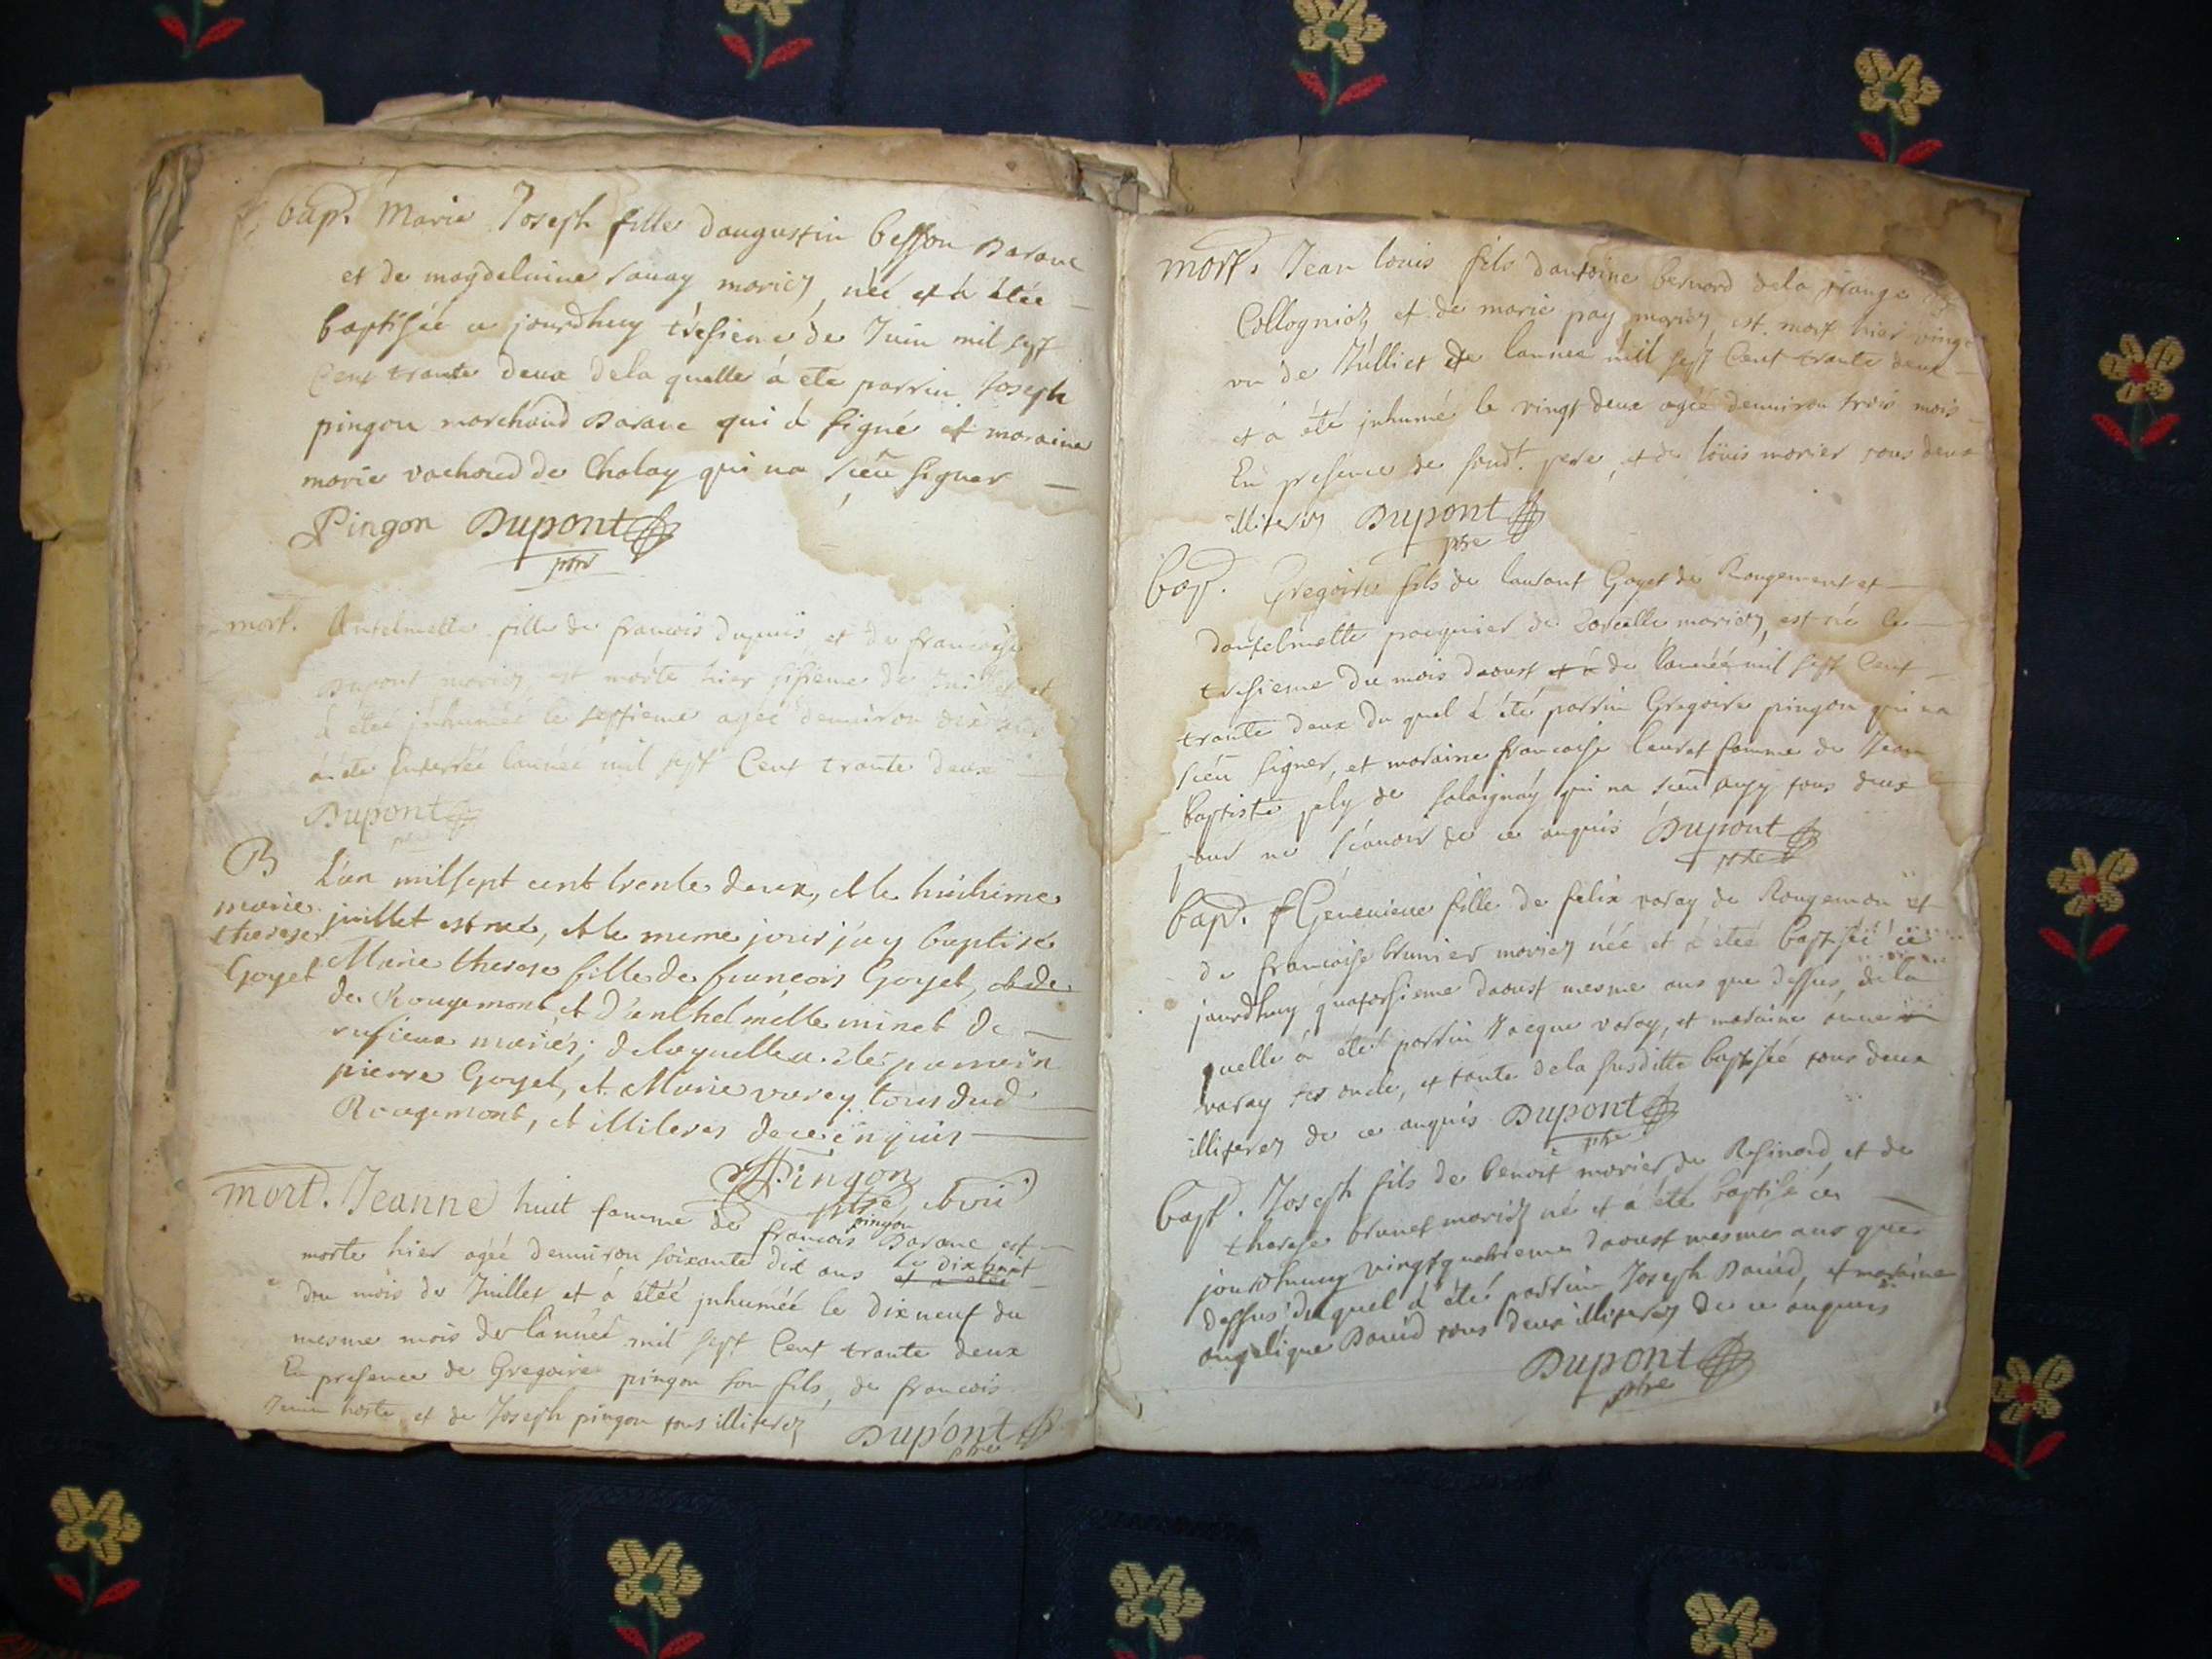 bap. Marie Joseph fille daugustin besson Darane
et de magdelaine sauay mariez, née et à étée
baptisée ce jourdhuy tresieme de Juin mil sept
Cent trante deux dela quelle à ete parrin Joseph
pingon marchand Darane qui à signé et maraine
marie vachoud de Chaley qui na sceu signer
Pingon Dupont
ptre
mort. Antelmette fille de francois dupuis et de francoise
Dupont mariez, est morte hier sisieme de Juillet et
à étéé jnhuméé le septieme agéé denuiron dix
à été Enterréé lannéé mil sept Cent trante deux
Dupont
B L'an mil sept cent trente deux, et le huictieme
marie juillet est née, et le meme jour j'ay baptisé
therese Marie therese fille de francois Goyet, et de
Goyet de Rougemont, et D'anthelmette minet de
rufieux mariés; de laquelle a été parrain
pierre Goyet, et Marie varey tous dud
Rougemont, et illiteres de ce enquis
Pingon
ptre et vic
mort. Jeanne huit famme de francois pingon Darane est
morte hier agéé denuiron soixante dix ans et a étéé le dixhuit
du mois de Juillet et à étéé jnhuméé le dixneuf du
mesme mois de lannéé mil sept Cent trante deux
En presence de Gregoire pingon son fils, de francois
hoste et de Joseph pingon tous illiterez Dupont
ptre
mort. Jean louis fils dantoine bernard dela grange
Collognioz et de marie pay mariez est mort hier vingt
un de Julliet de lannee mil sept Cent trante deux
et à été jnhumé le vingt deux agéé denuiron trois mois
En presence de sond. pere et de loüis marier tous deux
illiterez Dupont
ptre
bap. Gregoire fils de laurant Goyet de Rougemont et
dantelmette pacquier de Lorcelle mariez, est né le
tresieme du mois daoust et à de lannéé mil sept Cent
trante deux du quel à été parrin Gregoire pingon qui na
sceu signer, et maraine francoise lauret famme de Jean
baptiste jaly de salaignay qui na sceu ausy tous deux
pour ne scauoir de ce anquis Dupont
ptre
bapt. Geneuieue fille de felix varay de Rougemon et
de francoise brunier mariez néé et à étéé baptiséé ce
jourdhuy quatorsieme daoust mesme ans que dessus, dela
quelle à étéé parrin Jacque varay, et maraine anne
varay ses oncle, et tante dela susditte baptiséé tous deux
illiterez de ce anquis Dupont
ptre
bapt. Joseph fils de benoit marier de Resinod et de
therese brunet mariez né et à été baptisé ce
jourdhuy vingtquatrieme daoust mesme ans que
dessus, duquel à été parrin Joseph Dauid, et maraine
angelique Dauid tous deux illiterez de ce anquis
Dupont
ptre